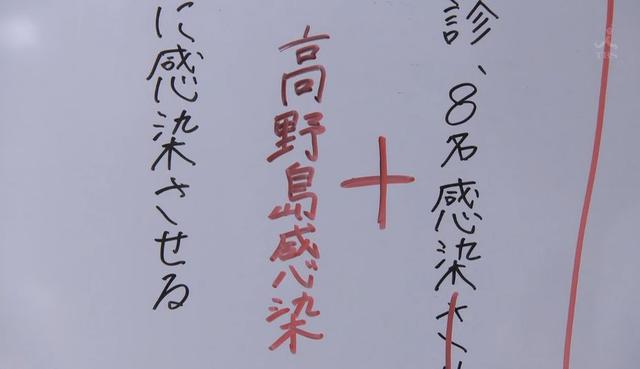 診、8名感染さ
高野島感染
に感染させる